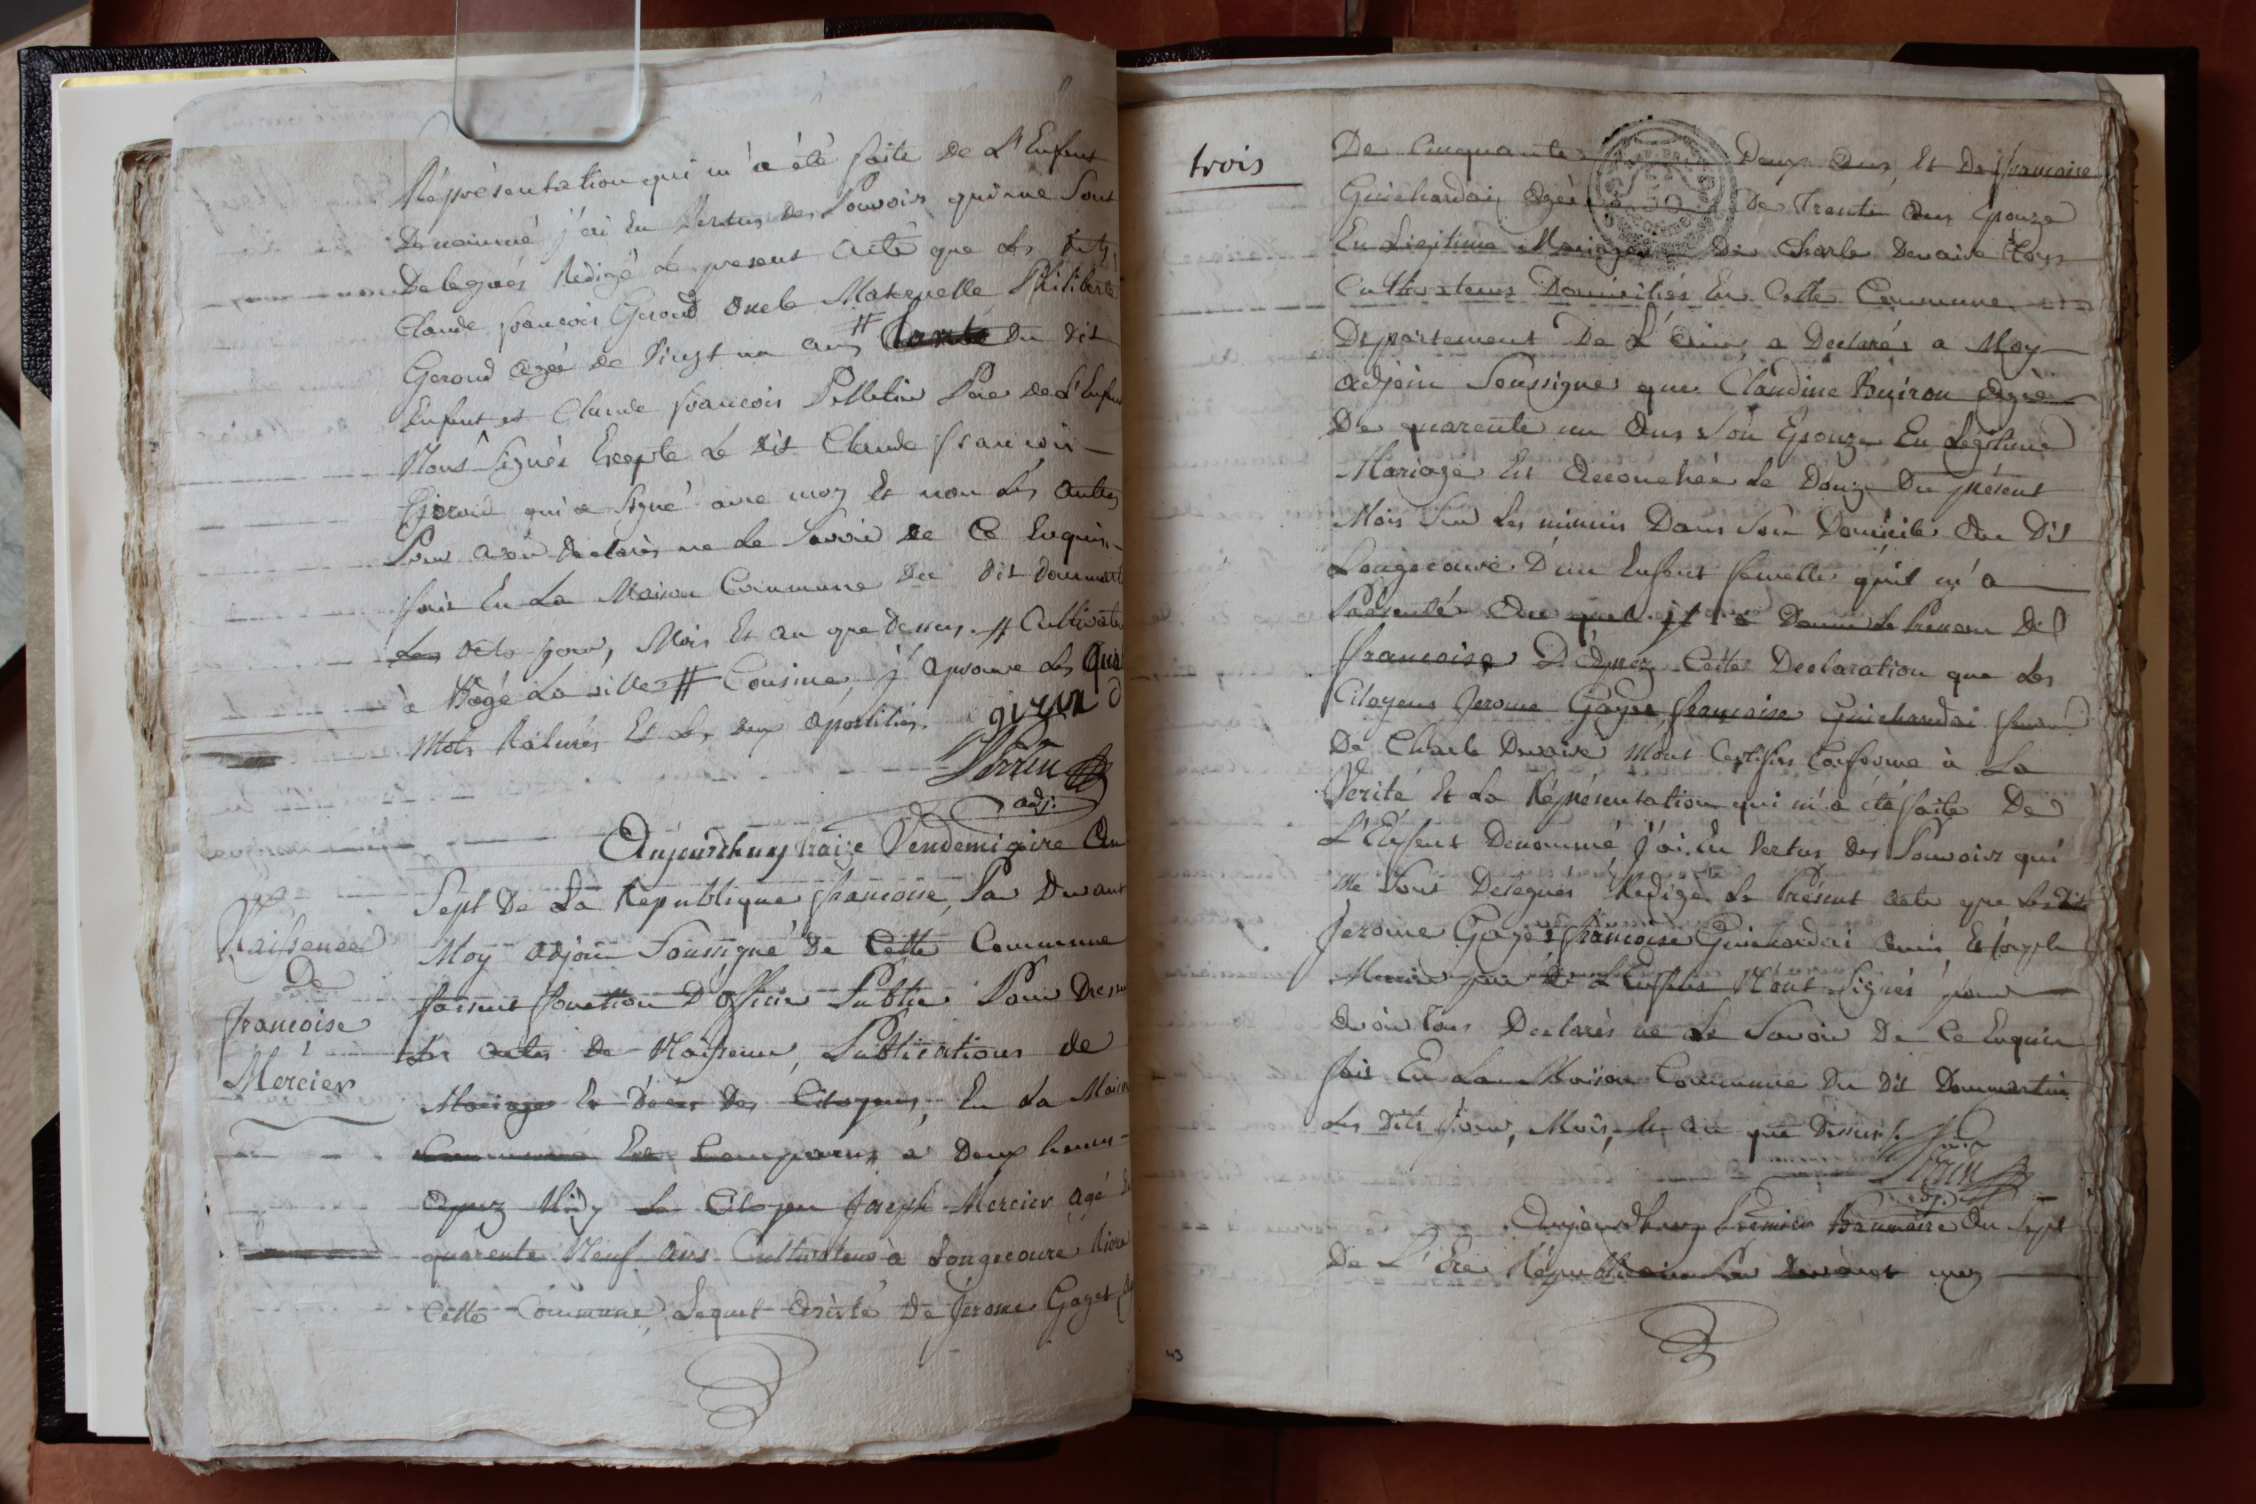 Représentation qui m'a été faite de L'Enfent
Denommé j'ai En Vertus des Pouvoirs qui me Sont
Delegués Redigé Le present acte que Les dits
Claude francois Geroud oncle Maternelle Philiberte
Geroud agée de Vingt un ans # tante Du dit
Enfent et Claude francois Pelletin Pere de L'Enfent
Nont Signés Excepte Le dit Claude francois
Geroud qui a Signé avec moy Et non Les autres
Pour avoir declarès ne Le Savoir de Ce Enquis
fait En La Maison Commune Du dit dommartin
Les dits jour, Mois Et an que dessus. # Cultivateur
à Bâgé La ville # Cousine, j'aprouve Les
Mots Raturés Et Les deux apostilies. giroud
Perrin
adj.
Aujourdhuy traize Vendemiaire an
Sept De La Republique francoise, Par Devant
Moy adjoin Soussigné De Cette Commune
faisent fonction D'officier Public Pour Dresser
Les actes De Naissence, Publications de
Mariages Et Décès Des Citoyens, En La Maison
Commune Est Comparus a Deux heures
apres Midy Le Citoyen Joseph Mercier agé de
quarente Neuf ans Cultivateur à Longecoure
Cette Commune, Lequel assisté De Jerome Gayet
Naissence
De
francoise
Mercier
trois
De Cinquante Deux ans, Et De francoise
Guichardai agée De Trente ans Epouze
En Legitime Mariage De Charle Devaive tous
Cultivateurs Domiciliés En Cette Commune
Departement De L'ain, a Declarés a Moy
adjoin Soussigné que Claudine Buiron agée
De quarente un ans Son Epouze En Legitime
Mariage Est accouchée Le Douze Du présent
Mois Sur Les minuis Dans Son Domicile au Dit
Longecoure D'un Enfent femelle quil m'a
Présenté au quel il a Donné Le Prenom De
francoise D'aprez Cette Declaration que Les
Citoyens Jerome Gayet francoise Guichardai femme
De Charle Devaive Mont Certifiés Conforme à La
Verité Et La Représentation qui m'a été faite De
L'Enfent Denommé J'ai En Vertus des Pouvoirs qui
Me Sont Delegués Redigé Le Présent acte que Les dit
Jerome Gayet francoise Guichardai amis Et Joseph
Mercier pere de L'Enfent Nont Signés pour
avoir tous Declarès ne Le Savoir De Ce Enquis
fait En La Maison Commune Du Dit Dommartin
Les Dits Jour, Mois, Et an que Dessus.
Perrin
adj.
Aujourdhuy Premier Brumaire an Sept
De L'Ere Républicaine Par Devant moy
43